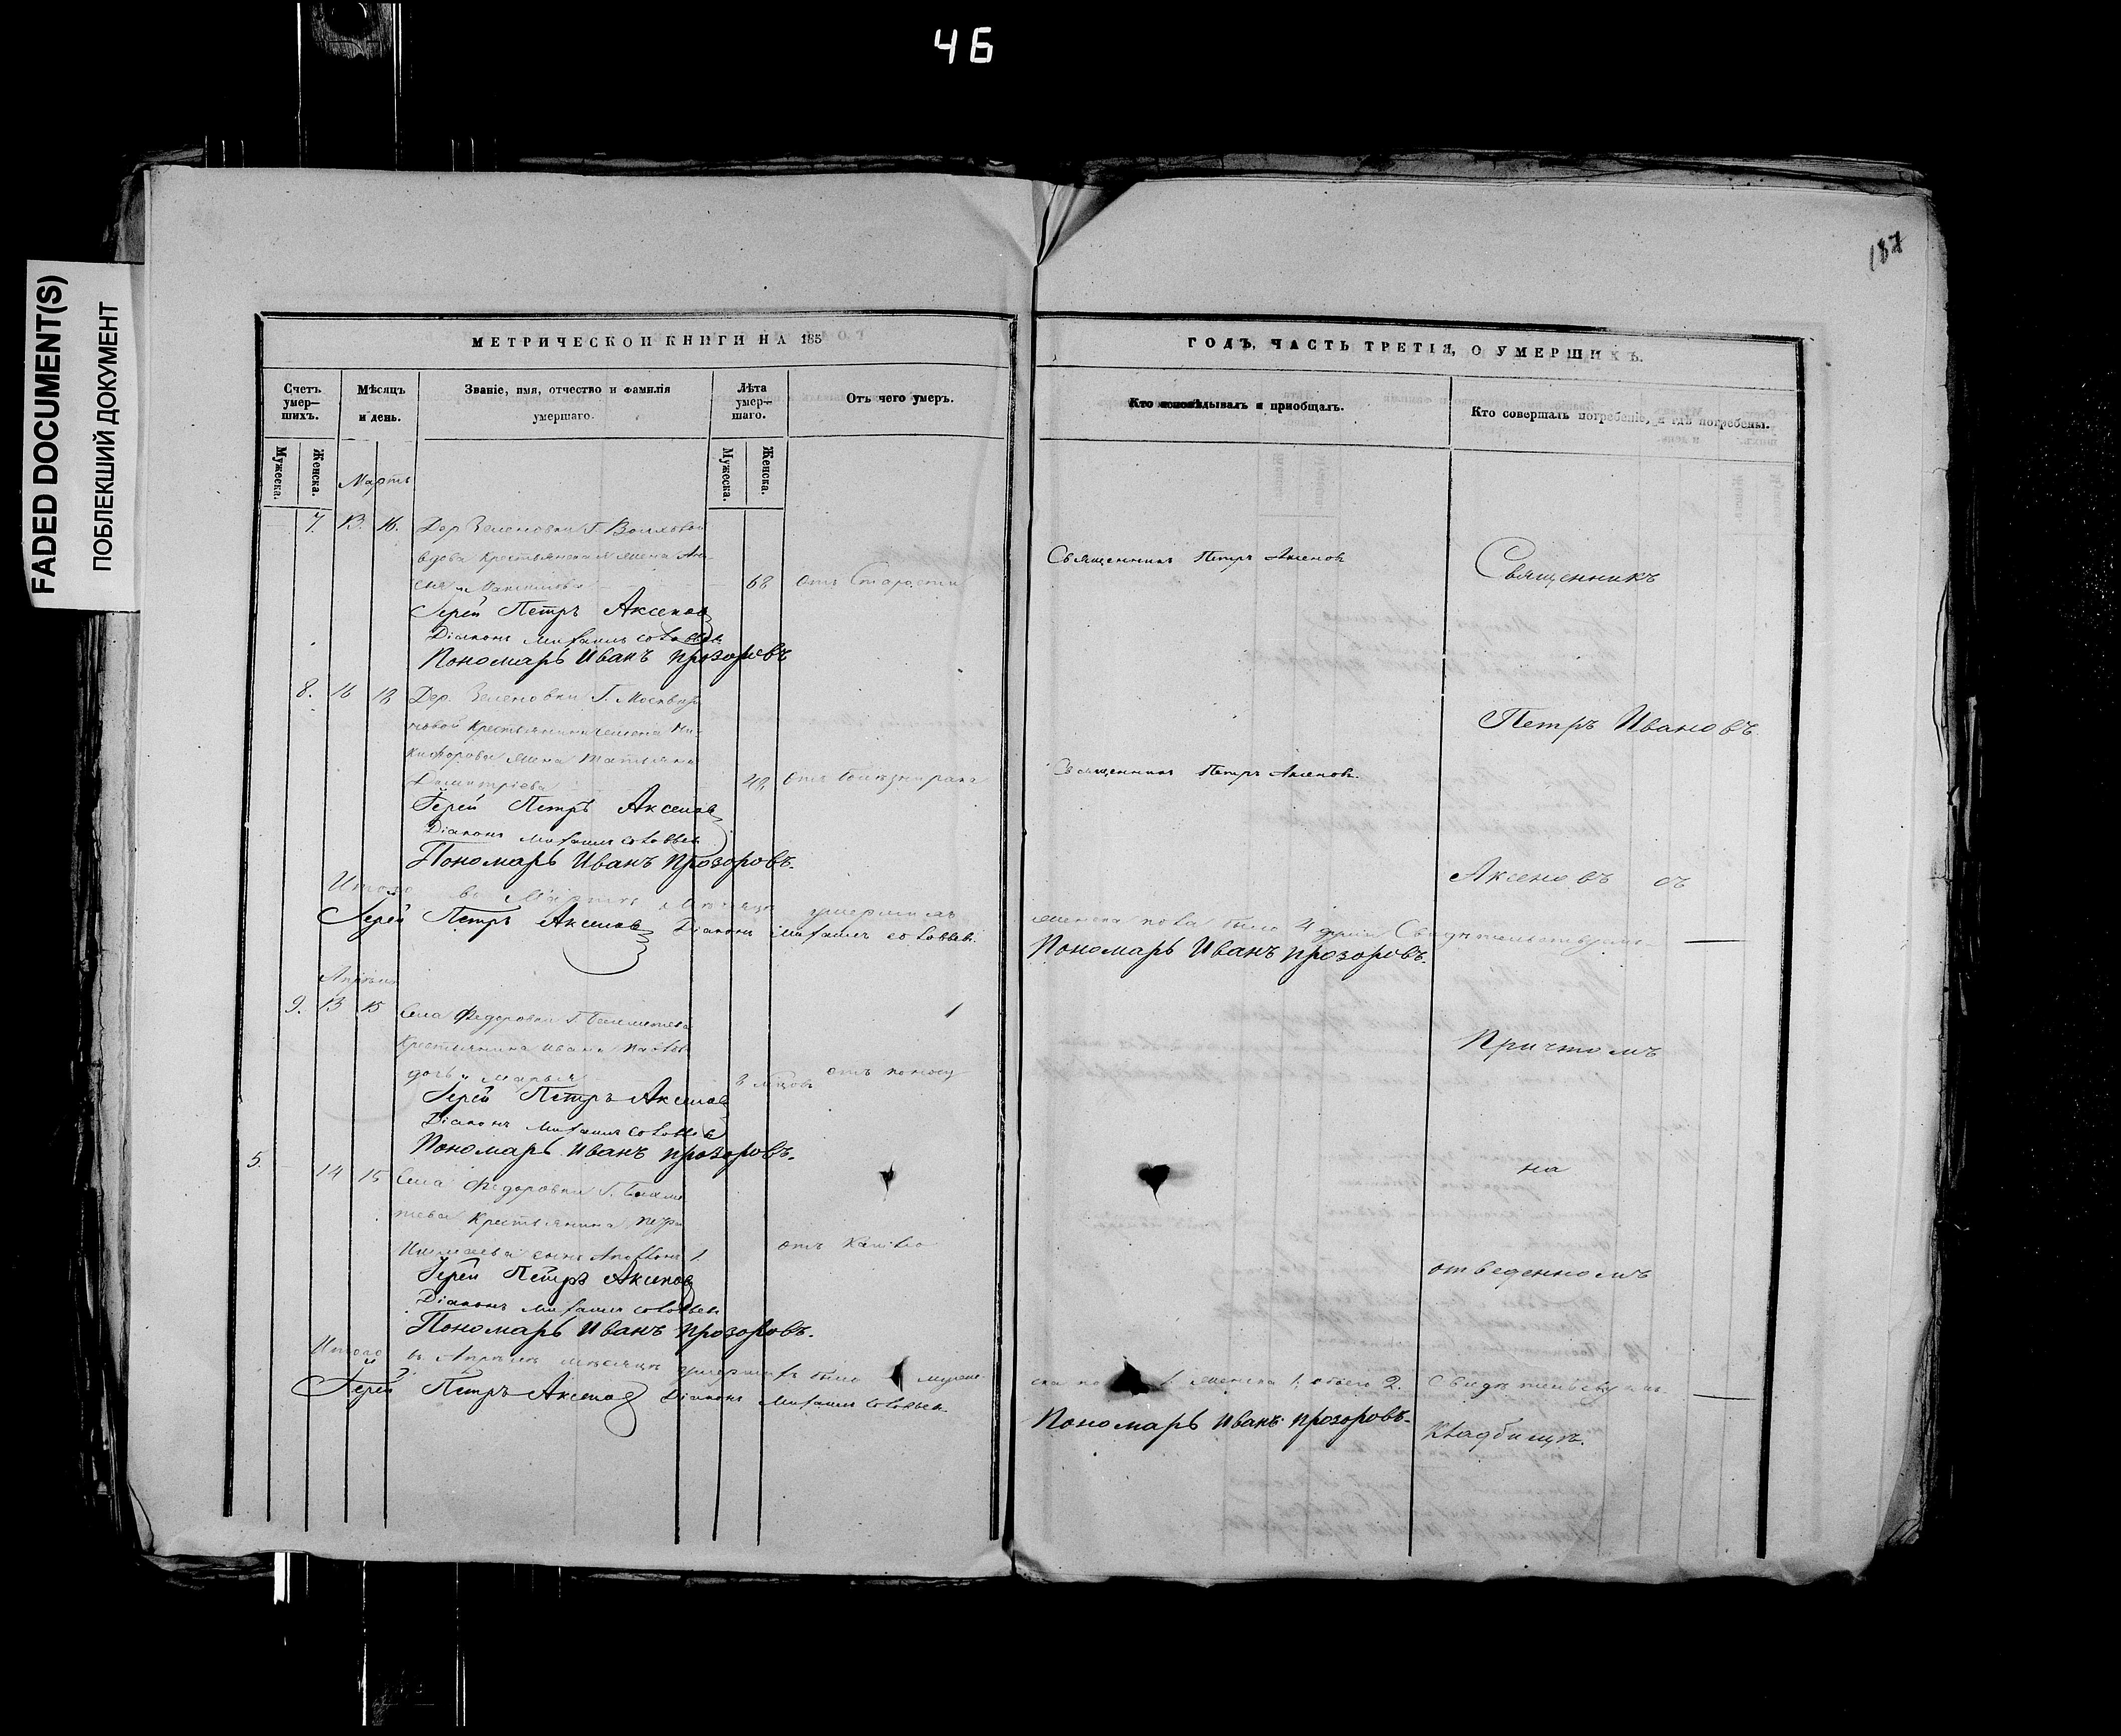 46
FADED DOCUMENT(S)
ПОБЛЕКШИЙ ДОКУМЕНТ
187
МЕТРИЧЕСКОЙ КНИГИ НА 185
Счетъ умер—шихъ.
Мѣсяцъ и день.
Званіе, имя, отчество и фамилія умершаго.
Лѣта умер—шаго.
Отъ чего умеръ.
Мужеска.
Женска.
Мужеска.
Женска.
Мартъ
7. 13. 16. Дер. Зеленовки Г.
вдова крестьянская жена
68 отъ Старости
Іерей Петръ Аксеновъ
Діаконъ Михаилъ Соловьевъ
Пономарь Иванъ Прозоровъ
8. 16 18 Дер. Зеленовки Г.
крестьянина Семена Ни-
кифорова жена Татьяна
Димитріева отъ болезни рака
Іерей Петръ Аксеновъ
Діаконъ Михаилъ Соловьевъ
Пономарь Иванъ Прозоровъ.
Итого въ Мартѣ мѣсяцѣ умершихъ
Іерей Петръ Аксеновъ Діаконъ Михаилъ Соловьевъ.
Апрѣль
9. 13 15 Села Федоровки Г.
Крестьянина Ивана
дочь Марья 3 отъ поносу
Іерей Петръ Аксеновъ
Діаконъ Михаилъ Соловьевъ
Пономарь Иванъ Прозоровъ.
5. 14 15 Села Федоровки Г.
Крестьянина Петра
сынъ 1 отъ
Іерей Петръ Аксеновъ
Діаконъ Михаилъ Соловьевъ
Пономарь Иванъ Прозоровъ.
Итого въ Апрѣлѣ мѣсяцѣ умершихъ было муже-
Іерей Петръ Аксеновъ Діаконъ Михаилъ Соловьевъ
ГОДЪ, ЧАСТЬ ТРЕТІЯ, О УМЕРШИХЪ.
Кто исповѣдывалъ и приобщалъ.
Кто совершалъ погребеніе, и гдѣ погребены.
Священникъ Петръ Аксеновъ
Священникъ
Петръ Ивановъ
Священникъ Петръ Аксеновъ.
Аксеновъ съ
женска пола было 4 души Свидѣтельствуемъ
Пономарь Иванъ Прозоровъ.
Причтомъ
на
отведенномъ
ска 1 женска 1, обоего 2. Свидѣтельствуемъ
Пономарь Иванъ Прозоровъ.
Кладбищѣ.